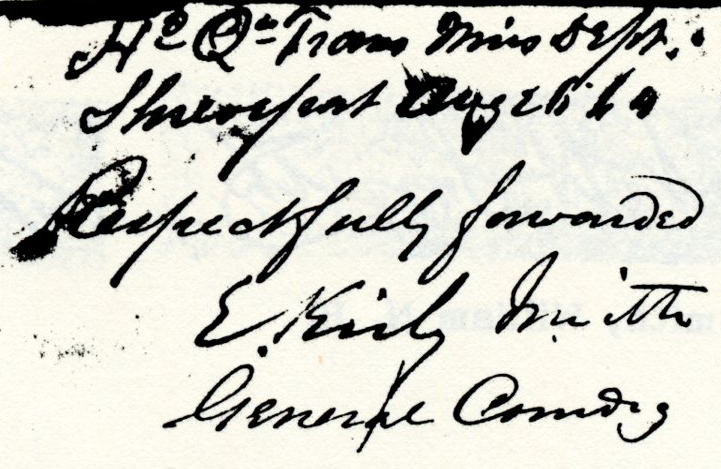 Hd Qrs Trans Miss Dept.
Shreveport Aug
Respectfully forwarded
E. Kirby Smith
General Comdg